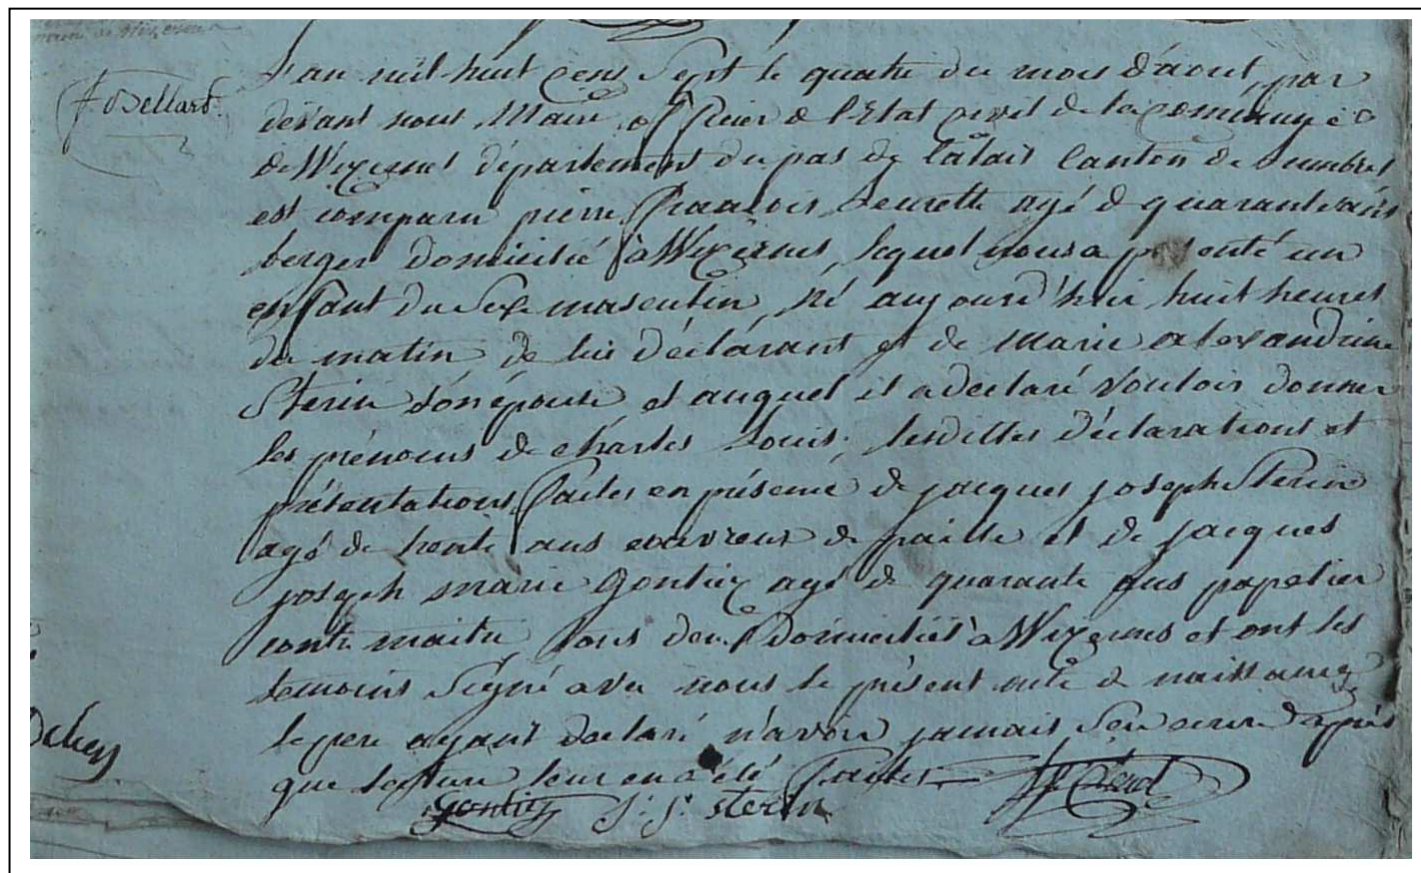 F. Bellard.
L'an mil huit cens sept le quatre du mois d'aout, par
devant nous Maire officier de l'Etat civil de la commune
de Wizernes département du pas de Calais Canton de Lumbres
est comparu pierre françois agé de quarante ans
berger domicilié à Wizernes, lequel nous a présenté un
enfant du sexe masculin, né aujourd'hui huit heures
du matin de lui déclarant et de Marie alexandrine
Sterin son épouse et auquel il a declaré vouloir donner
les prénoms de charles Louis; lesdittes déclarations et
présentations faites en présence de jacques joseph Sterin
agé de trente ans couvreur de paille et de jacques
joseph marie Gontiez agé de quarante ans papetier
contre maitre tous deux domiciliés à Wizernes et ont les
temoins signé avec nous le présent acte de naissance
le pere ayant declaré n'avoir jamais sçu ecrire après
que lecture leur en a été faite
Gontiez J: J: sterin